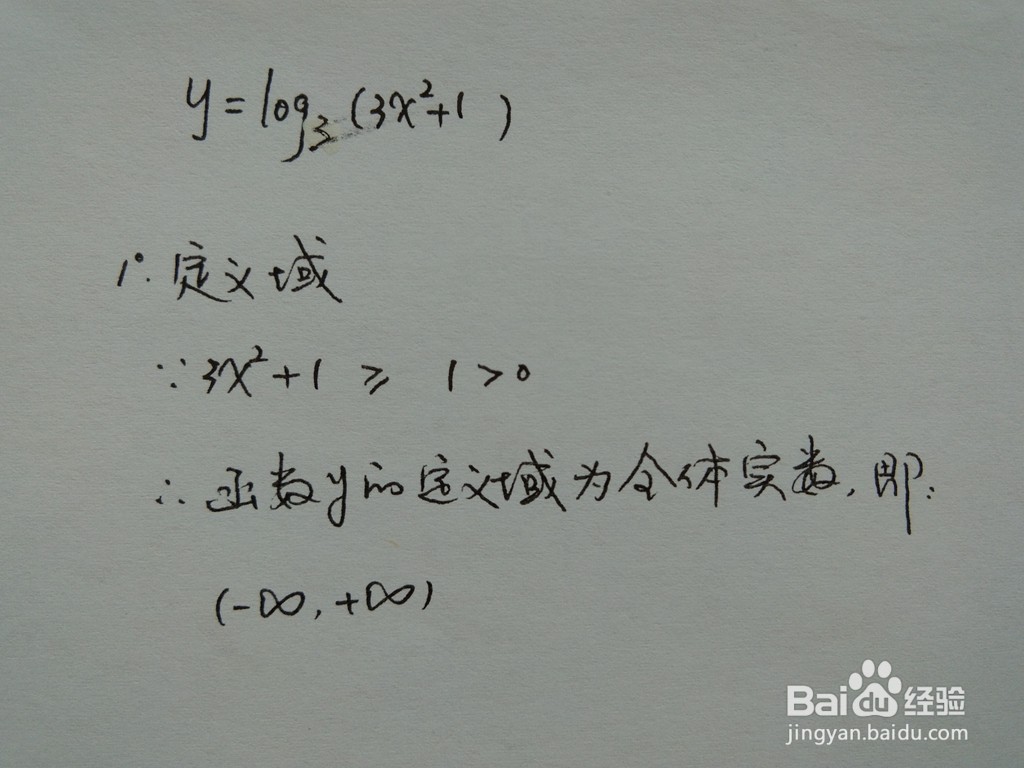 y=log₃(3x²+1)
1°.定义域
∵3x²+1 ≥ 1>0
∴函数y的定义域为全体实数,即:
(-∞,+∞)
Bai du 经验
jingyan.baidu.com